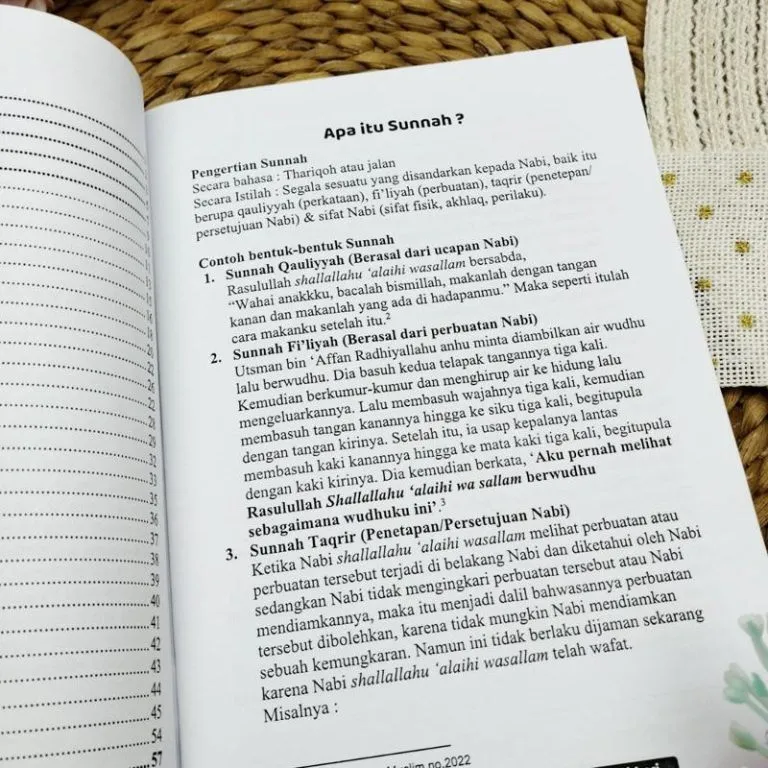 Apa itu Sunnah ?
Pengertian Sunnah
Secara bahasa : Thariqoh atau jalan
Secara Istilah : Segala sesuatu yang disandarkan kepada Nabi, baik itu
berupa qauliyyah (perkataan), fi'liyah (perbuatan), taqrir (penetepan/
persetujuan Nabi) & sifat Nabi (sifat fisik, akhlaq, perilaku).
Contoh bentuk-bentuk Sunnah
1. Sunnah Qauliyyah (Berasal dari ucapan Nabi)
Rasulullah shallallahu 'alaihi wasallam bersabda,
"Wahai anakkku, bacalah bismillah, makanlah dengan tangan
kanan dan makanlah yang ada di hadapanmu." Maka seperti itulah
cara makanku setelah itu.²
2. Sunnah Fi'liyah (Berasal dari perbuatan Nabi)
Utsman bin 'Affan Radhiyallahu anhu minta diambilkan air wudhu
lalu berwudhu. Dia basuh kedua telapak tangannya tiga kali.
Kemudian berkumur-kumur dan menghirup air ke hidung lalu
mengeluarkannya. Lalu membasuh wajahnya tiga kali, kemudian
membasuh tangan kanannya hingga ke siku tiga kali, begitupula
dengan tangan kirinya. Setelah itu, ia usap kepalanya lantas
membasuh kaki kanannya hingga ke mata kaki tiga kali, begitupula
dengan kaki kirinya. Dia kemudian berkata, 'Aku pernah melihat
Rasulullah Shallallahu 'alaihi wa sallam berwudhu
sebagaimana wudhuku ini'.³
3. Sunnah Taqrir (Penetapan/Persetujuan Nabi)
Ketika Nabi shallallahu 'alaihi wasallam melihat perbuatan atau
perbuatan tersebut terjadi di belakang Nabi dan diketahui oleh Nabi
sedangkan Nabi tidak mengingkari perbuatan tersebut atau Nabi
mendiamkannya, maka itu menjadi dalil bahwasannya perbuatan
tersebut dibolehkan, karena tidak mungkin Nabi mendiamkan
sebuah kemungkaran. Namun ini tidak berlaku dijaman sekarang
karena Nabi shallallahu 'alaihi wasallam telah wafat.
Misalnya :
no.2022
35
36
37
38
39
40
41
42
43
44
45
54
57